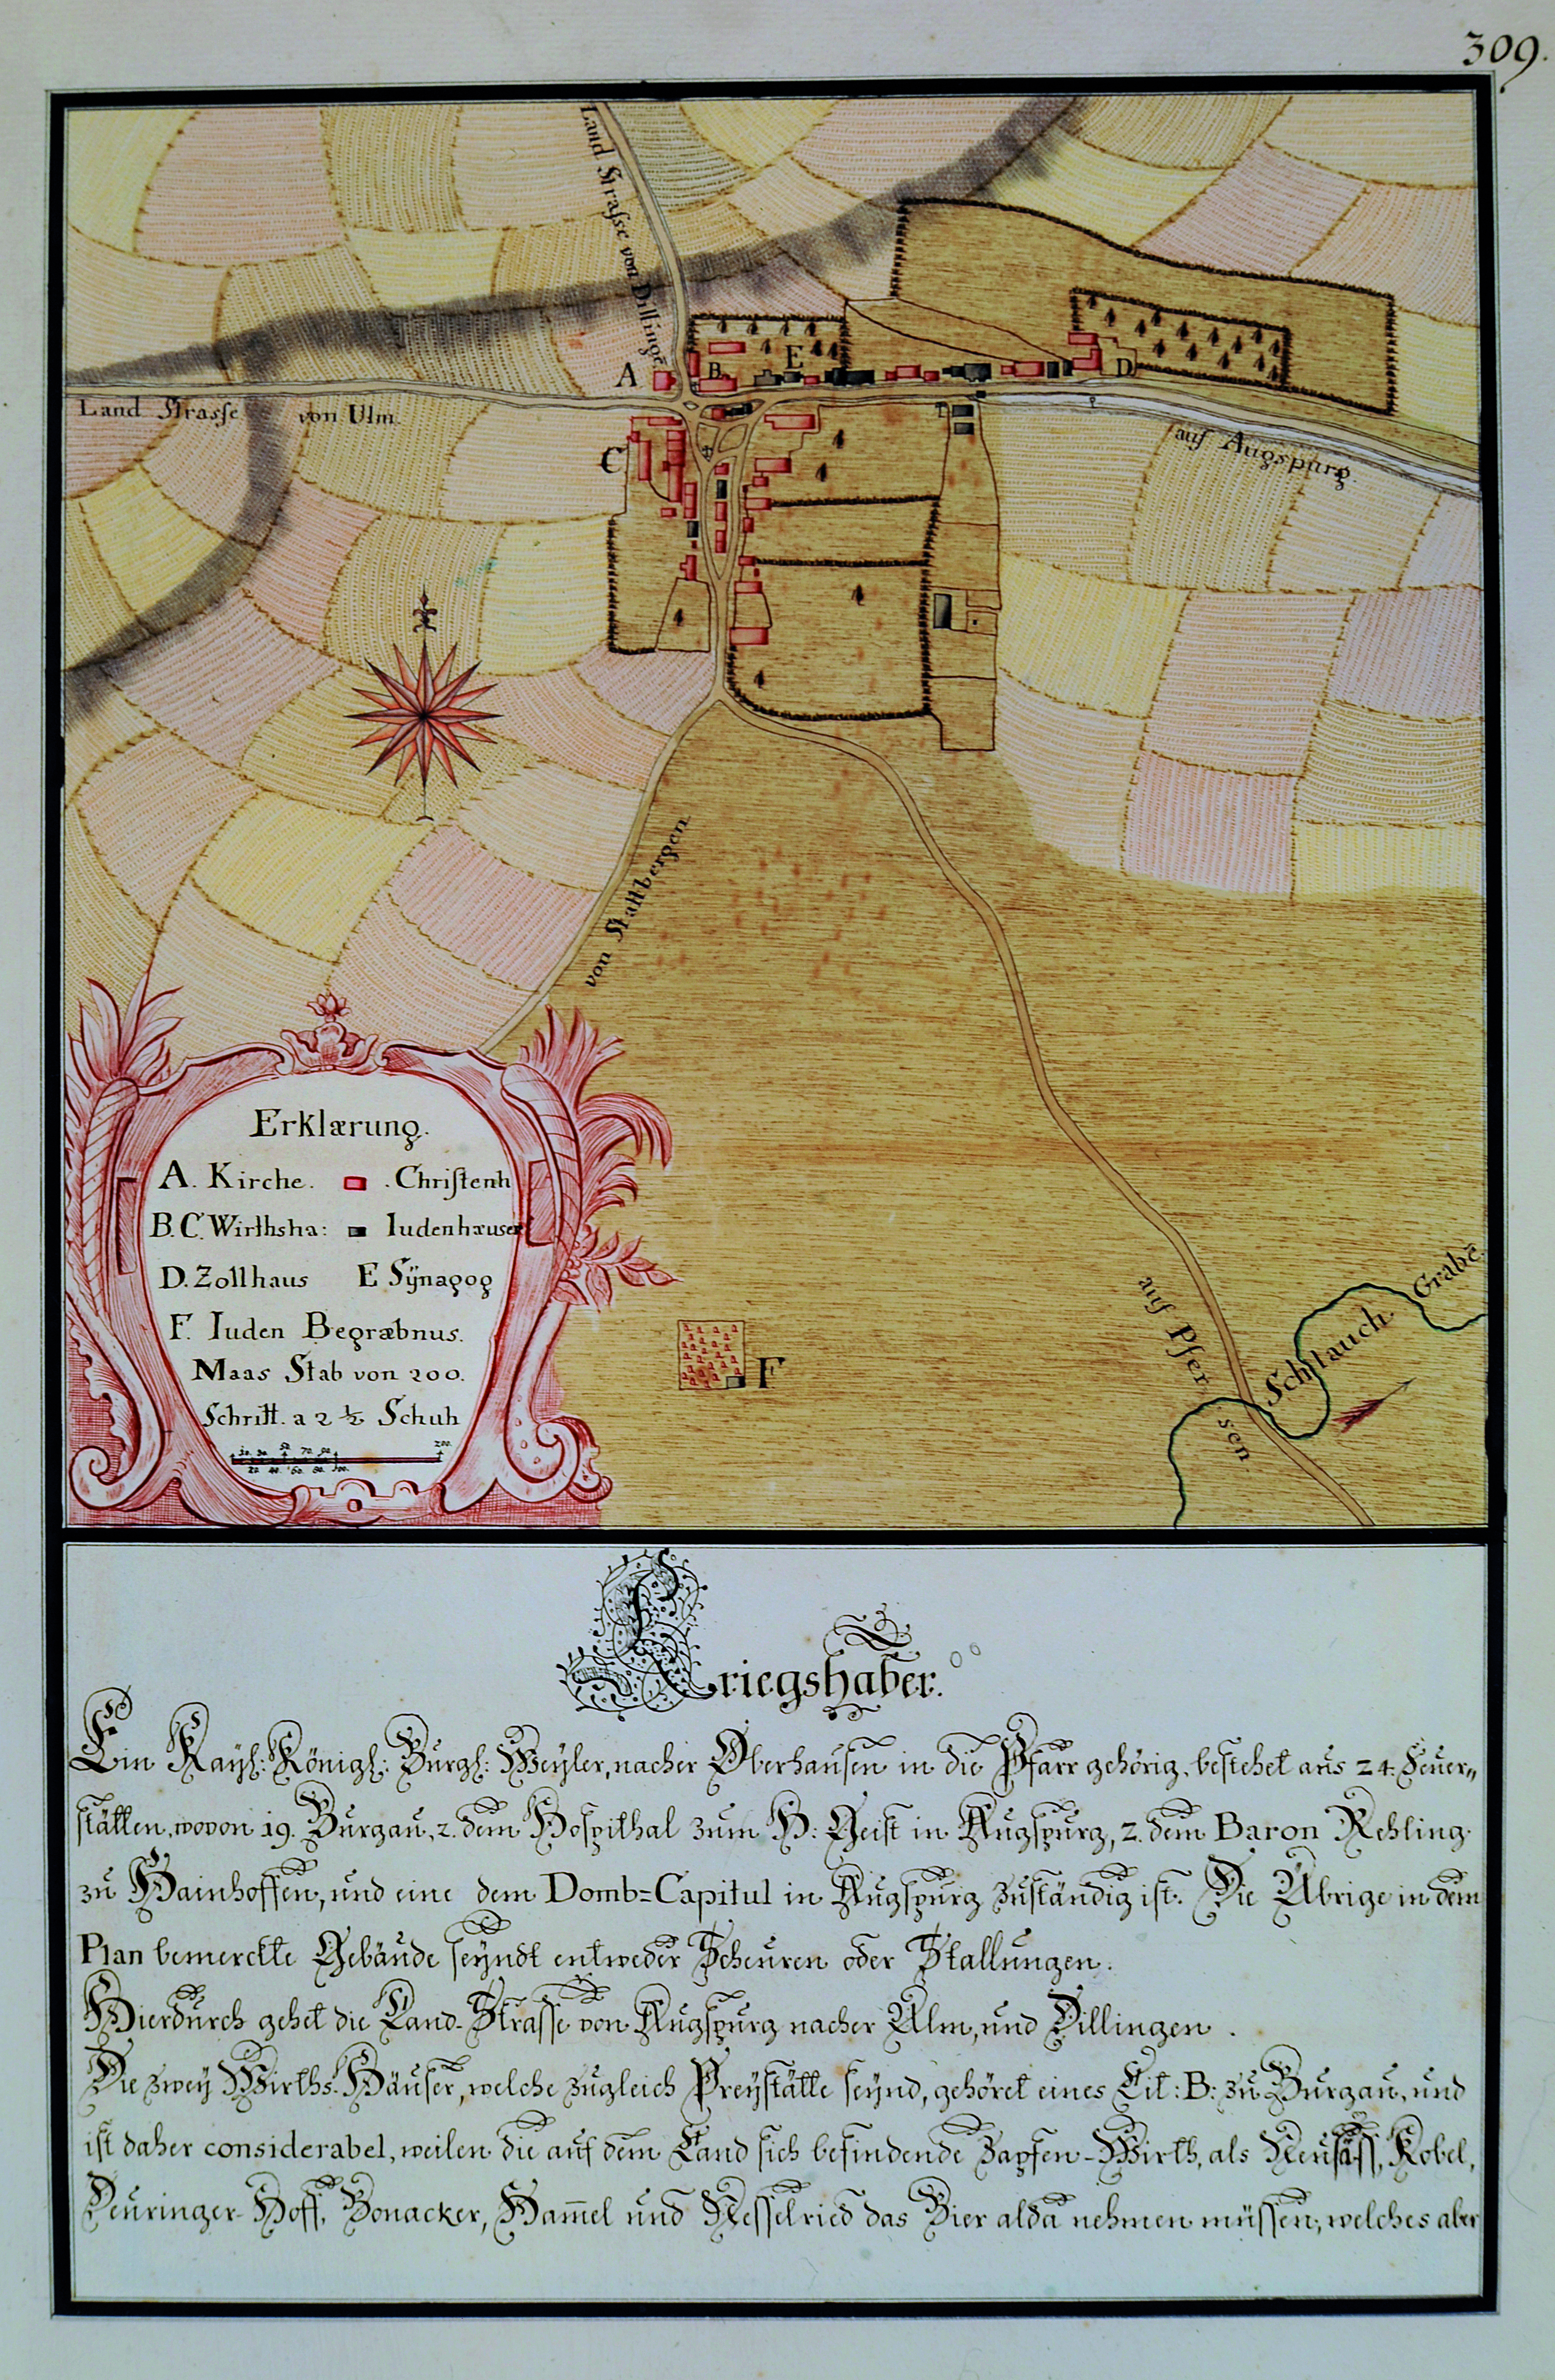 309.
Land Strasse von Dillingē
A
B.
E
D
Land Strasse von Ulm.
auf Augspurg.
C
von Stattbergen.
Erklærung.
A. Kirche. . Christenh
B.C. Wirthsha: Iudenhæuser
D. Zollhaus E Sÿnagog
F. Iuden Begræbnus.
Maas Stab von 200.
Schritt. a 2 ½ Schuh
10. 30. 50. 70. 90. 200.
20. 40. 60. 80. 100.
F
auf Pfersen
Schlauch Grabē
Kriegshaber.
Ein Kaÿſ: Königl: Burgl: Weÿler, nacher Oberhausen in die Pfarr gehörig, bestehet aus 24. Feuer„
stätten, wovon 19. Burgau, 2. dem Hospithal zum H: Geist in Augspurg, 2. dem Baron Rehling
zu Hainhoffen, und eine dem Domb=Capitul in Augspurg zuständig ist. Die Übrige in dem
Plan bemerckte Gebäude seÿndt entweder Scheuren oder Stallungen.
Hierdurch gehet die Land-Strasse von Augspurg nacher Ulm, und Dillingen.
Die zweÿ Wirths-Häuser, welche zugleich Preÿstätte seÿnd, gehöret eines Lit: B: zu Burgau, und
ist daher considerabel, weilen die auf dem Land sich befindende Zapfen-Wirth, als Neusäss, Kobel,
Deuringer-Hoff, Bonacker, Ham̄el und Nesselried das Bier alda nehmen müssen, welches aber